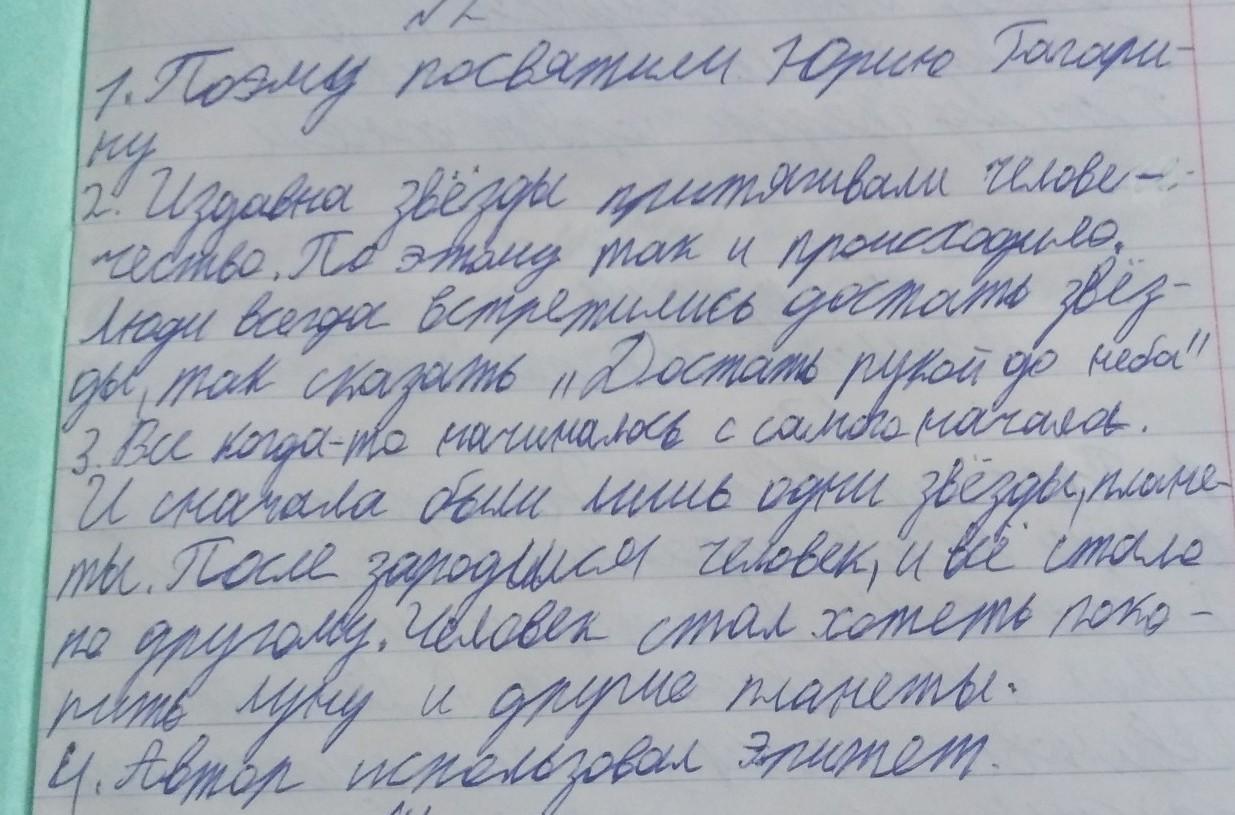 №2
1. Поэму посвятили Юрию Гагари-
ну
2. Издавна звёзды притягивали челове-
чество. По этому так и происходило.
Люди всегда встретились достать звёз-
ды, так сказать "Достать рукой до неба"
3. Все когда-то начиналось с самого начала.
И сначала были лишь одни звёзды, плане-
ты. После зародился человек, и всё стало
по другому. Человек стал хотеть поко-
рить луну и другие планеты.
4. Автор использовал эпитет.